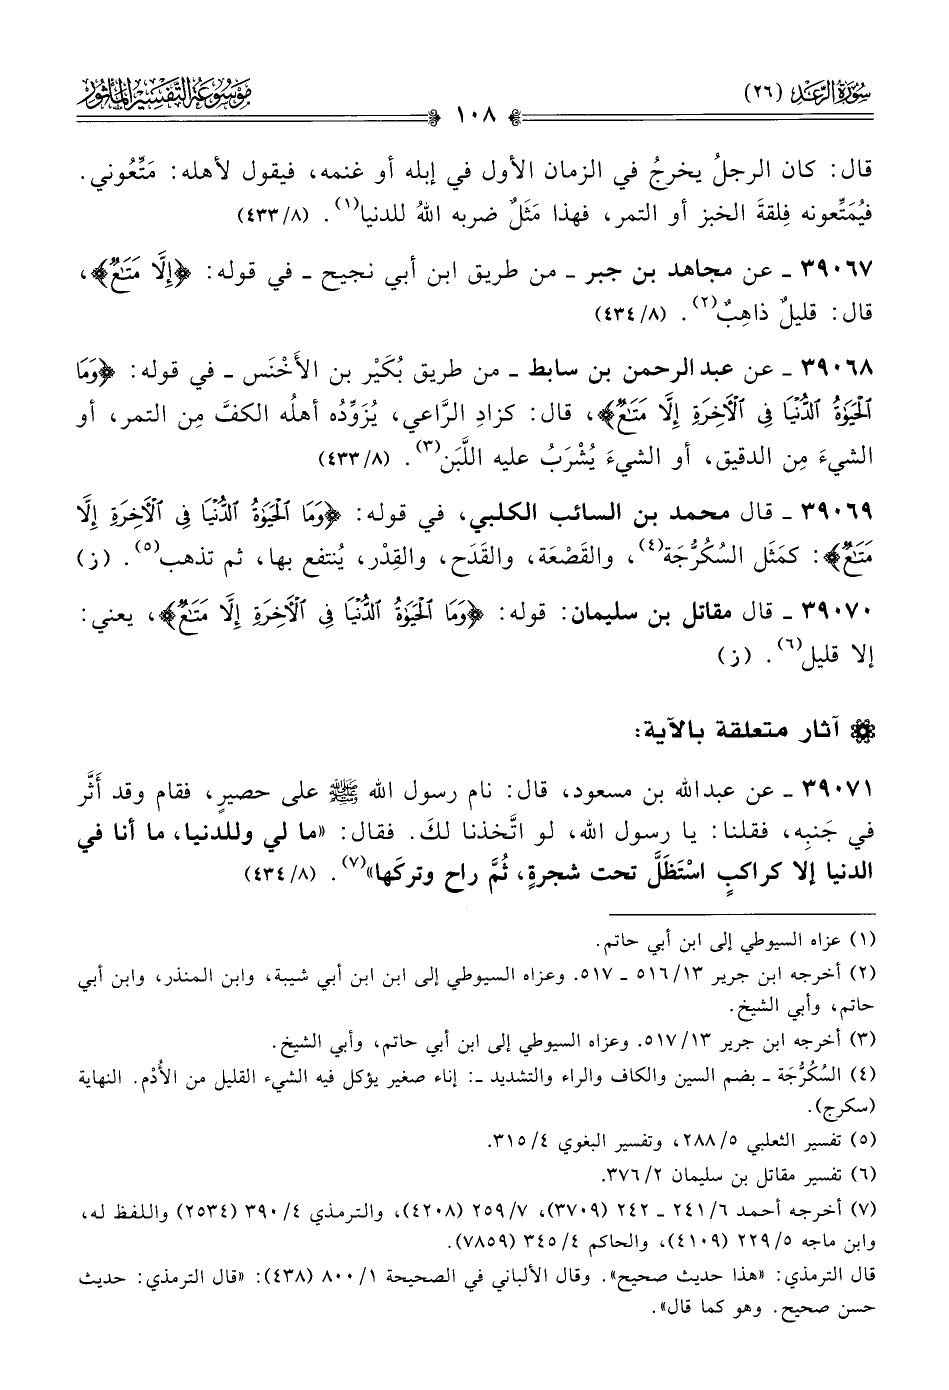 سُورَةُ الرَّعْد (٢٦)
١٠٨
مَوْسُوعَة التَّفْسِيرُ المَأْثُور
قال: كان الرجلُ يخرجُ في الزمان الأول في إبله أو غنمه، فيقول لأهله: مَتِّعُوني.
فيُمَتِّعونه فِلقةَ الخبز أو التمر، فهذا مَثَلٌ ضربه اللهُ للدنيا(١). (٤٣٣/٨)
٣٩٠٦٧ ـ عن مجاهد بن جبر ـ من طريق ابن أبي نجيح ـ في قوله: ﴿إِلَّا مَتَٰعٌ﴾،
قال: قليلٌ ذاهِبٌ(٢). (٤٣٤/٨)
٣٩٠٦٨ ـ عن عبدالرحمن بن سابط ـ من طريق بُكَيْر بن الأَخْنَس ـ في قوله: ﴿وَمَا
ٱلْحَيَوٰةُ ٱلدُّنْيَا فِي ٱلْأٓخِرَةِ إِلَّا مَتَٰعٌ﴾، قال: كزادِ الرَّاعي، يُزَوِّده أهلُه الكفَّ مِن التمر، أو
الشيءَ مِن الدقيق، أو الشيءَ يُشْرَبُ عليه اللَّبَن(٣). (٤٣٣/٨)
٣٩٠٦٩ ـ قال محمد بن السائب الكلبي، في قوله: ﴿وَمَا ٱلْحَيَوٰةُ ٱلدُّنْيَا فِي ٱلْأٓخِرَةِ إِلَّا
مَتَٰعٌ﴾: كمَثَل السُكُرُّجَة(٤)، والقَصْعَة، والقَدَح، والقِدْر، يُنتفع بها، ثم تذهب(٥). (ز)
٣٩٠٧٠ ـ قال مقاتل بن سليمان: قوله: ﴿وَمَا ٱلْحَيَوٰةُ ٱلدُّنْيَا فِي ٱلْأٓخِرَةِ إِلَّا مَتَٰعٌ﴾، يعني:
إلا قليل(٦). (ز)
آثار متعلقة بالآية:
٣٩٠٧١ ـ عن عبدالله بن مسعود، قال: نام رسول الله ﷺ على حصيرٍ، فقام وقد أَثَّر
في جَنبِه، فقلنا: يا رسول الله، لو اتَّخذنا لكَ. فقال: «ما لي وللدنيا، ما أنا في
الدنيا إلا كراكبٍ اسْتَظَلَّ تحت شجرةٍ، ثُمَّ راح وتركَها»(٧). (٤٣٤/٨)
(١) عزاه السيوطي إلى ابن أبي حاتم.
(٢) أخرجه ابن جرير ٥١٦/١٣ ـ ٥١٧. وعزاه السيوطي إلى ابن ابن أبي شيبة، وابن المنذر، وابن أبي
حاتم، وأبي الشيخ.
(٣) أخرجه ابن جرير ٥١٧/١٣. وعزاه السيوطي إلى ابن أبي حاتم، وأبي الشيخ.
(٤) السُكُرُّجَة ـ بضم السين والكاف والراء والتشديد ـ: إناء صغير يؤكل فيه الشيء القليل من الأُدْم. النهاية
(سكرج).
(٥) تفسير الثعلبي ٢٨٨/٥، وتفسير البغوي ٣١٥/٤.
(٦) تفسير مقاتل بن سليمان ٣٧٦/٢.
(٧) أخرجه أحمد ٢٤١/٦ ـ ٢٤٢ (٣٧٠٩)، ٢٥٩/٧ (٤٢٠٨)، والترمذي ٣٩٠/٤ (٢٥٣٤) واللفظ له،
وابن ماجه ٢٢٩/٥ (٤١٠٩)، والحاكم ٣٤٥/٤ (٧٨٥٩).
قال الترمذي: «هذا حديث صحيح». وقال الألباني في الصحيحة ٨٠٠/١ (٤٣٨): «قال الترمذي: حديث
حسن صحيح. وهو كما قال».